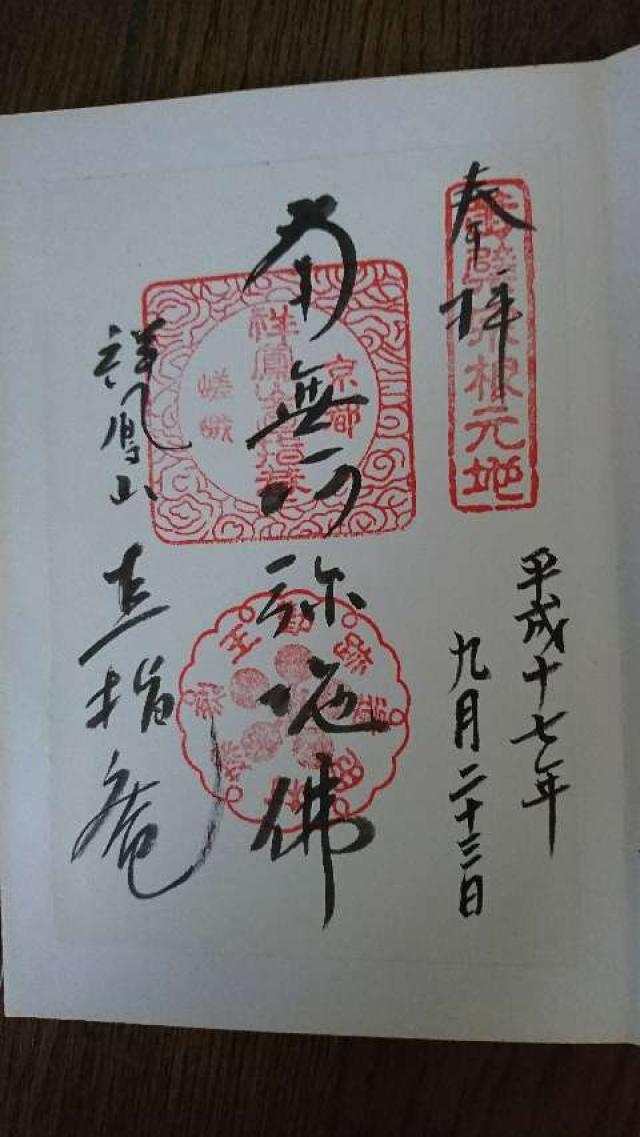 奉拝
根元地
平成十七年
九月二十三日
南無阿弥陀佛
京都
祥鳳山直指菴
嵯峨
祥鳳山
直指庵